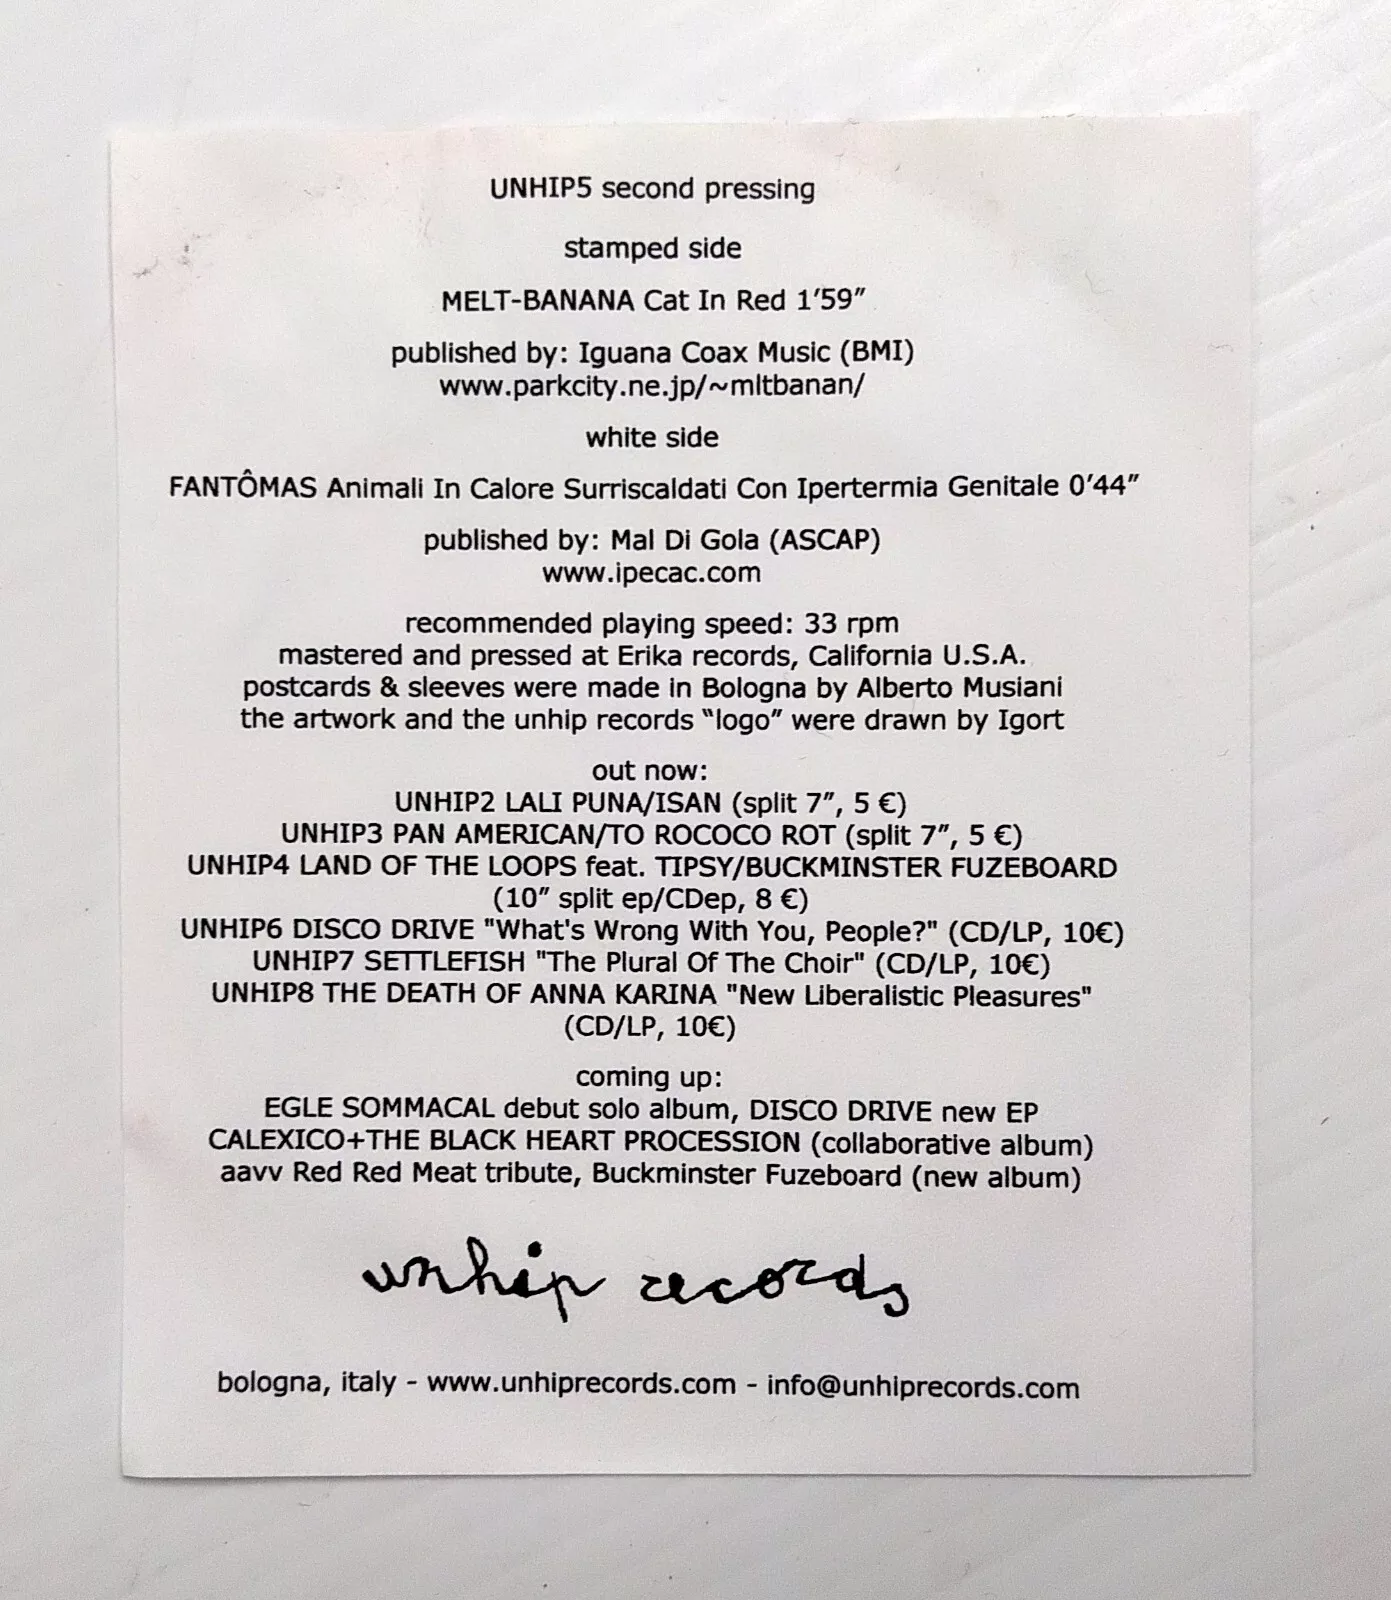 UNHIP5 second pressing
stamped side
MELT-BANANA Cat In Red 1’59”
published by: Iguana Coax Music (BMI)
www.parkcity.ne.jp/~mltbanan/
white side
FANTÔMAS Animali In Calore Surriscaldati Con Ipertermia Genitale 0’44”
published by: Mal Di Gola (ASCAP)
www.ipecac.com
recommended playing speed: 33 rpm
mastered and pressed at Erika records, California U.S.A.
postcards & sleeves were made in Bologna by Alberto Musiani
the artwork and the unhip records “logo” were drawn by Igort
out now:
UNHIP2 LALI PUNA/ISAN (split 7”, 5 €)
UNHIP3 PAN AMERICAN/TO ROCOCO ROT (split 7”, 5 €)
UNHIP4 LAND OF THE LOOPS feat. TIPSY/BUCKMINSTER FUZEBOARD
(10” split ep/CDep, 8 €)
UNHIP6 DISCO DRIVE "What's Wrong With You, People?" (CD/LP, 10€)
UNHIP7 SETTLEFISH "The Plural Of The Choir" (CD/LP, 10€)
UNHIP8 THE DEATH OF ANNA KARINA "New Liberalistic Pleasures"
(CD/LP, 10€)
coming up:
EGLE SOMMACAL debut solo album, DISCO DRIVE new EP
CALEXICO+THE BLACK HEART PROCESSION (collaborative album)
aavv Red Red Meat tribute, Buckminster Fuzeboard (new album)
unhip records
bologna, italy - www.unhiprecords.com - info@unhiprecords.com